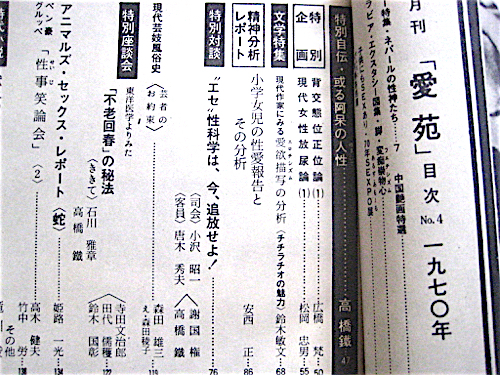 月刊「愛苑」目次 No.4 一九七〇年
特集・ネパールの性神たち…7 中国艶画特選
特別自伝・或る阿呆の人性 高橋鐵 47
特別企画
背交態位正位論(1) 広橋 梵 50
現代女性放尿論(1) 松岡忠男 55
文学特集
現代作家にみる愛欲描写の分析(チチラチオの魅力) 鈴木敏文 68
精神分析レポート
小学女児の性愛報告とその分析 安西 正 86
特別対談
"エセ"性科学は、今、追放せよ! 76
〈司会〉小沢昭一
〈客員〉唐木秀夫
謝国権
高橋鐵
現代芸妓風俗史
〈芸者のお約束〉 森田雄三 え・森田稜子 119
特別座談会
東洋医学よりみた
「不老回春」の秘法
〈ききて〉石川雅章
高橋鐵
寺田文治郎
田代儒穫
鈴木国彰 122
アニマルズ・セックス・レポート〈蛇〉 姫路一光 134
ペン豪グルッペ「性事笑論会」(2)
高木健夫
竹中労 138
その他